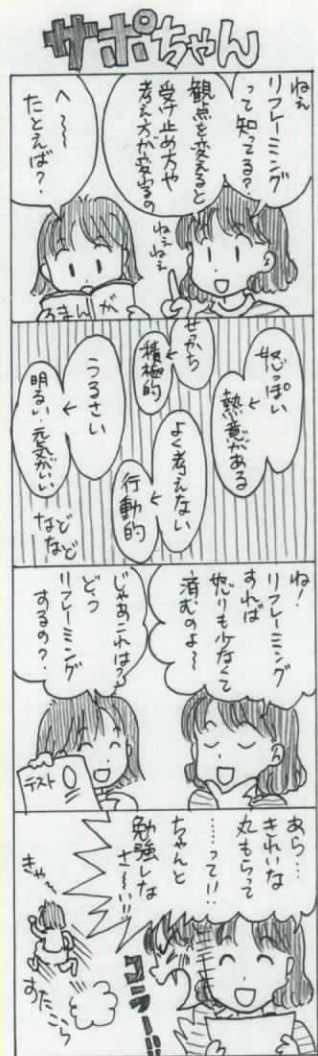 サポちゃん
ねぇ
リフレーミング
って知ってる?
観点を変えると
受け止め方や
考え方が変るの
ねぇねぇ
へ〜〜
たとえば?
まんが
怒っぽい
↓
熱意がある
せっかち
↓
積極的
よく考えない
↓
行動的
うるさい
↓
明るい・元気がいい
などなど
ね!
リフレーミング
すれば
怒りも少なくて
済むのよ〜
じゃあこれは?
どう
リフレーミング
するの?
テスト 0
あら…
きれいな
丸もらって
……って!!
ちゃんと
勉強しな
さ〜い!!
コラー!!
きゃ〜
すたこら